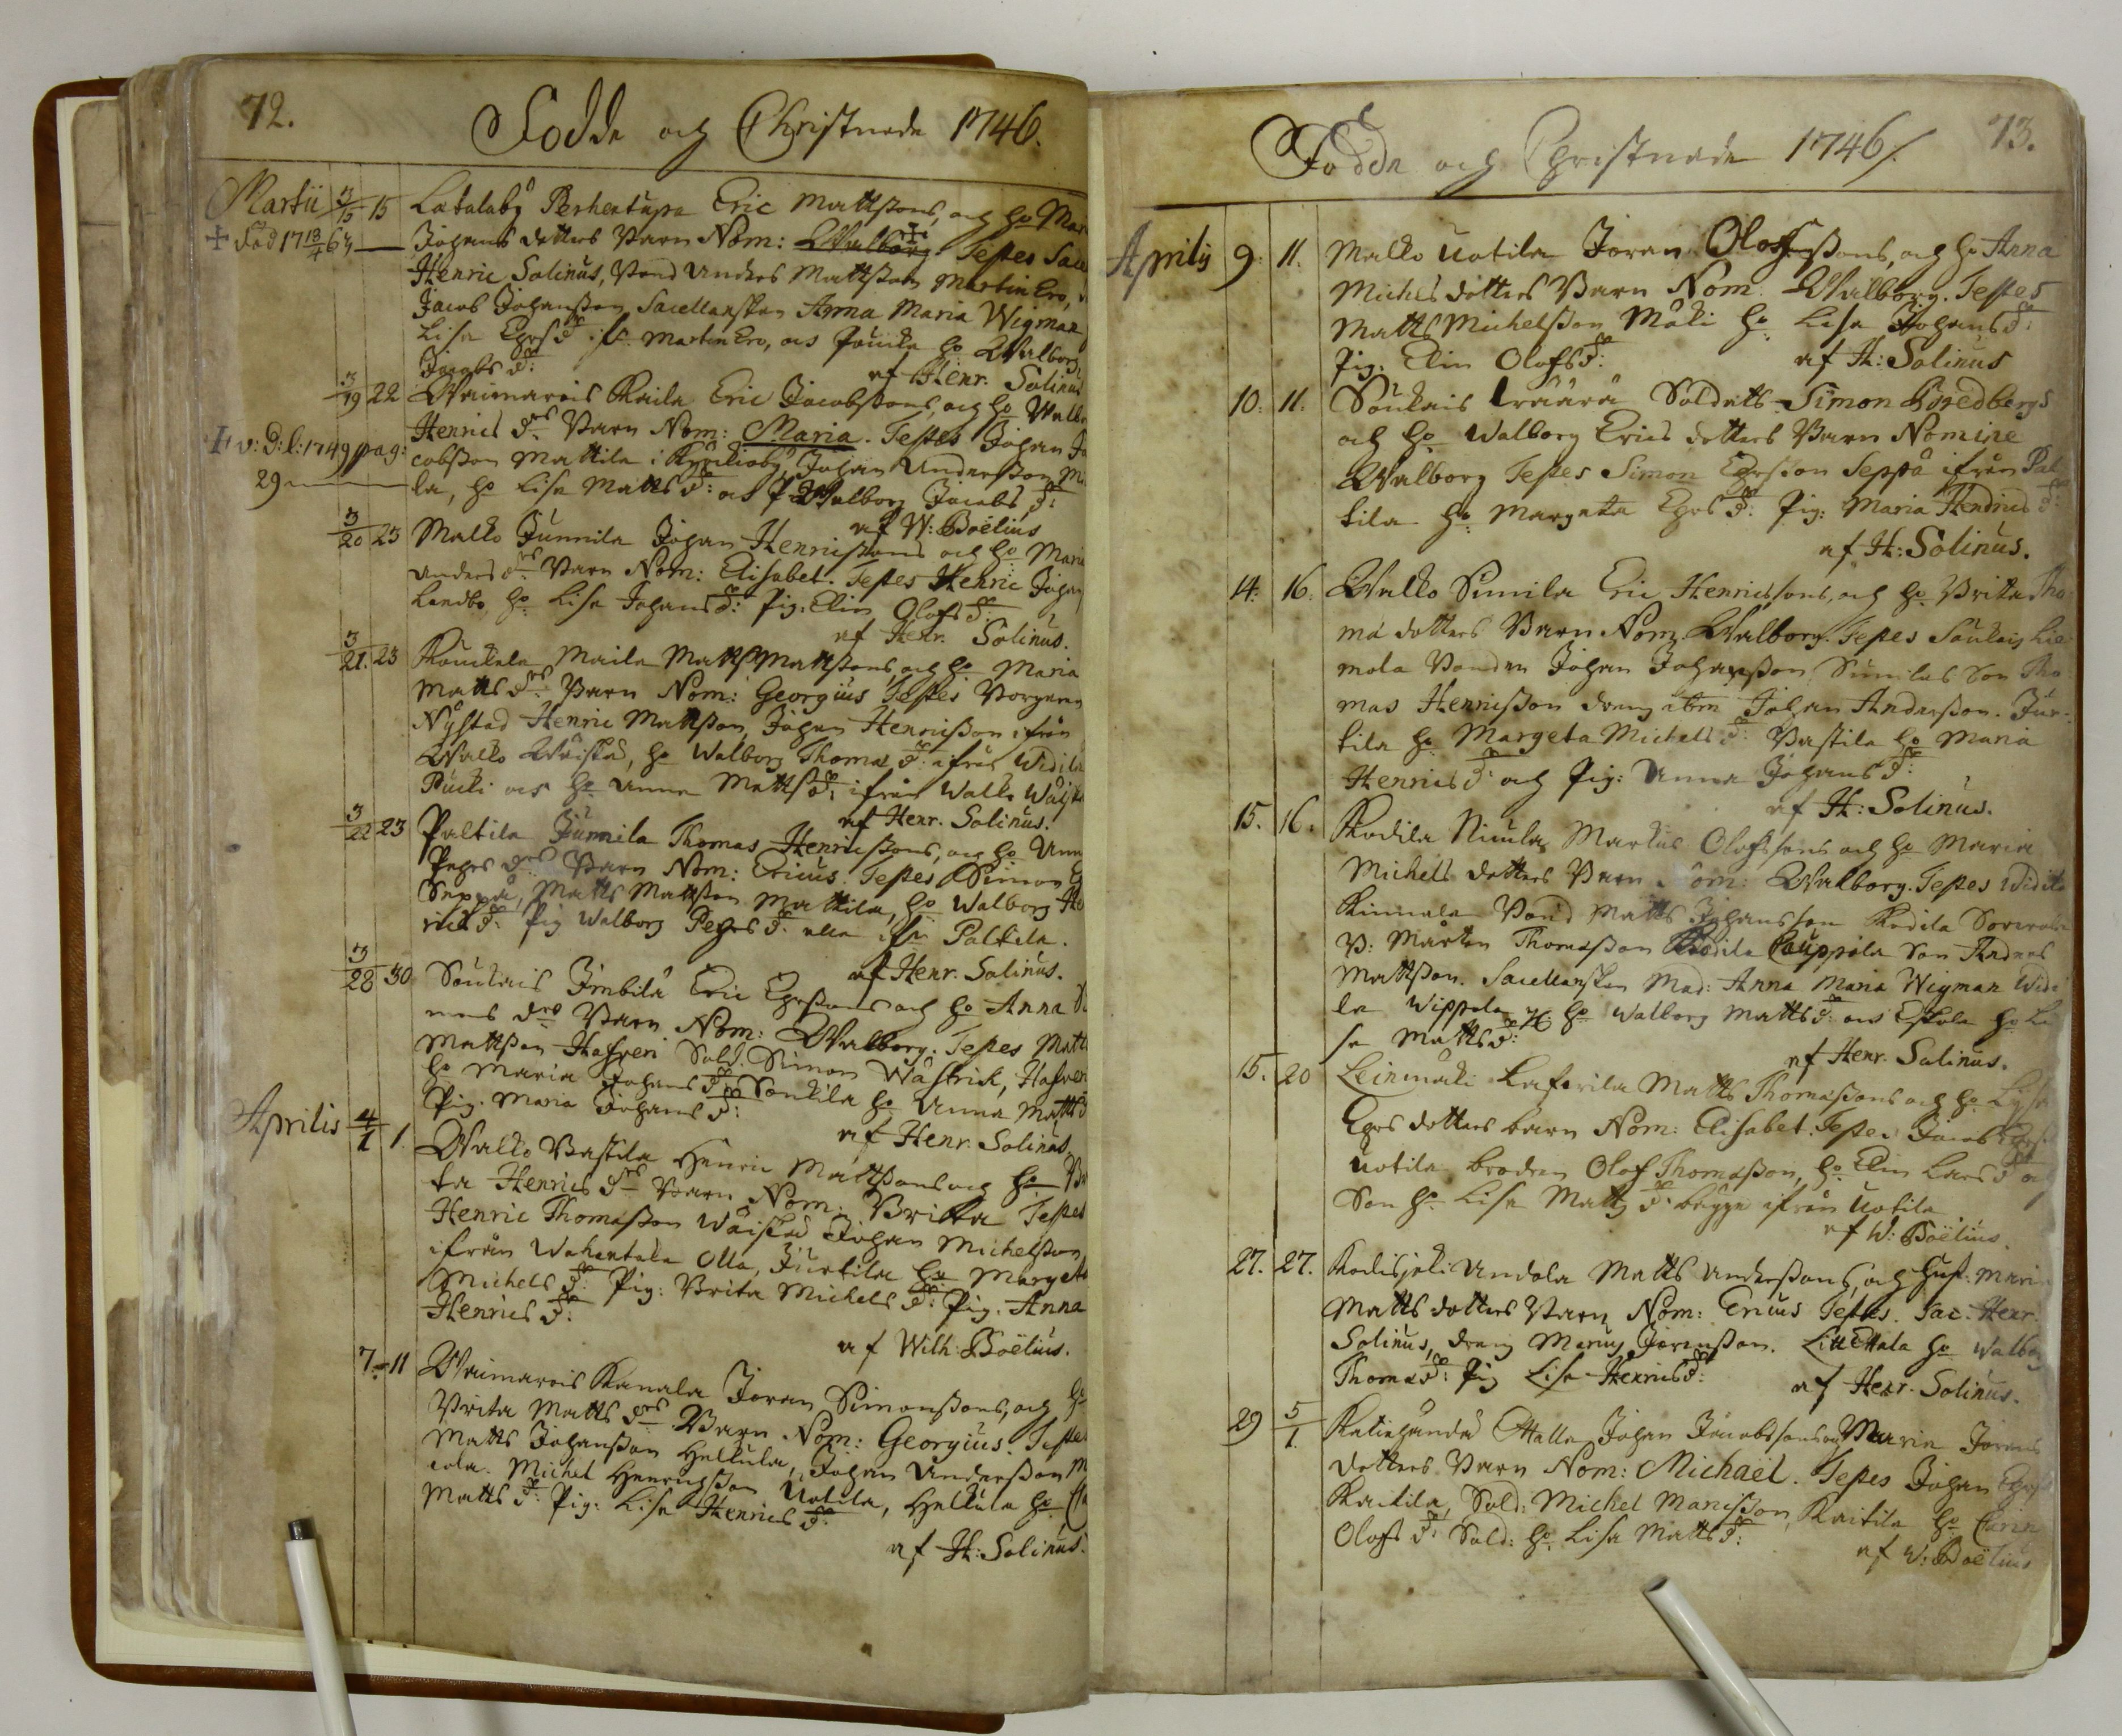 72.
Födde och Christnade 1746.
Martii 3/15 15 Lätalaby Perhentupa Eric Mattssons, och ho Mar
död 17 18/4 67 Johans dotters Barn Nom: Walborg. Testes Sace
Henric Salinus, Anders Mattsson Martin Ero,
Jacob Johansson Sacellanskan Anna Maria Wigman
Lisa Martin Ero, ho Walborg
Jacobs dr:
af Henr. Salinus
3/19 22 Waimarois Raila Eric Jacobssons, och ho Walbo
Henrics drs Barn Nom: Maria. Testes Johan Ja
v: D: l: 1749 pag: cobsson Mattila i Johan Andersson Mi
29 la, ho Lisa Matts dr: och P Walborg Jacobs dr:
af W: Boëlius
3/20 23 Malko Junnila Johan Henricssons och ho Maria
Anders drs Barn Nom: Elisabet. Testes Henric Johan
Landbo, ho Lisa Johans dr: Pig: Elin Olofs dr:
af Henr. Salinus.
3/21. 23 Maila Matts Mattssons, och ho Maria
Matts drs Barn Nom: Georgius Testes Borgaren
Nystad Henric Mattsson, Johan Henricsson ifrån
Walko ho Walborg Thomas dr: ifrån Widila
ho Anna Matts dr: ifrån Walko
af Henr. Salinus.
3/22 23 Paltila Junnila Thomas Henricssons, och ho Ann
drs Barn Nom: Ericus. Testes Simon
Seppä, Matts Mattsson Mattila, ho Walborg He
rics dr: Pig Walborg dr: alla ifrån Paltila.
af Henr. Salinus.
3/28 30 Soukais Imbilä Eric och ho Anna
mons drs Barn Nom: Walborg. Testes Matt
Mattsson Hasveri Sold. Simon Wästrik, Hasver
ho Maria Johans dr: ho Anna Matts d
Pig. Maria Johans dr:
af Henr. Salinus.
Aprilis 4/1 1. Walko Bastila Henric Mattssons och ho Br
ta Henrics drs Barn Nom: Britta Testes
Henric Thomasson Johan Michelsson
ifrån Wahantaka Olla, Jurtila ho Margeta
Michels dr: Pig: Brita Michels dr: Pig. Anna
Henrics dr:
af Wilh: Boëlius.
7. 11 Waimarois Kanala Joran Simonssons, och ho
Brita Matts drs Barn Nom: Georgius. Testes
Matts Johansson Hellula, Johan Andersson M
cola. Michel Henricsson Uotila, Hellula ho
Matts dr: Pig: Lisa Henrics dr:
af H: Salinus.
73.
Födde och Christnade 1746.
Aprilis 9. 11. Malko Uotila Joran Olofssons, och ho Anna
Michels dotters Barn Nom. Walborg. Testes
Matts Michelsson Mäki ho Lisa Johans dr:
Pig. Elin Olofs dr:
af H: Salinus
10. 11. Soukais Soldats Simon Bredbergs
och ho Walborg Erics dotters Barn Nomine
Walborg Testes Simon Seppä ifrån Pal
tila ho Margeta dr: Pig: Maria Hendrics dr:
af H: Salinus.
14. 16. Walko Simila Eric Henricssons, och ho Brita Tho
ma dotters Barn Nom: Walborg. Testes Soukais
mola Bonden Johan Johansson, Similas Son Tho
mas Henricsson dreng ibm Johan Andersson. Jur
tila ho Margeta Michels dr: Bastila ho Maria
Henrics dr: och Pig: Anna Johans dr:
af H: Salinus.
15. 16. Kodila Nicula Markus Olofssons och ho Maria
Michels dotters Barn Nom: Walborg. Testes Widila
Kinnala Bond Matts Johansson Kodila
B: Mårten Thomasson Kodila Cauppila Son Anders
Mattsson. Sacellanskan Mad: Anna Maria Wigman Widi
la Wippola ho Walborg Matts dr: och Eskola ho Li
sa Matts dr:
af Henr. Salinus.
15. 20 Leinmäki Matts Thomassons och ho Lisa
dotters barn Nom: Elisabet. Testes Jacob
Uotila brodren Olof Thomasson, ho Elin Lars dr:
Son ho Lisa Matts dr: begge ifrån Uotila
af W: Boëlius.
27. 27. Kodisjoki Andola Matts Anderssons, och Hust: Mari
Matts dotters Barn Nom: Ericus Testes. Sac: Henr.
Salinus, dreng Marcus Joransson. ho Walbor
Thomas dr: Pig Lisa Henrics dr:
af Henr. Salinus.
29 5/1. Katinhändä Johan Jacobssons och Maria Jorans
dotters Barn Nom: Michaël. Testes Johan
Raitila, Sold: Michel Raitila ho Carin
Olofs dr: Sold: ho Lisa Matts dr:
af W: Boëlius